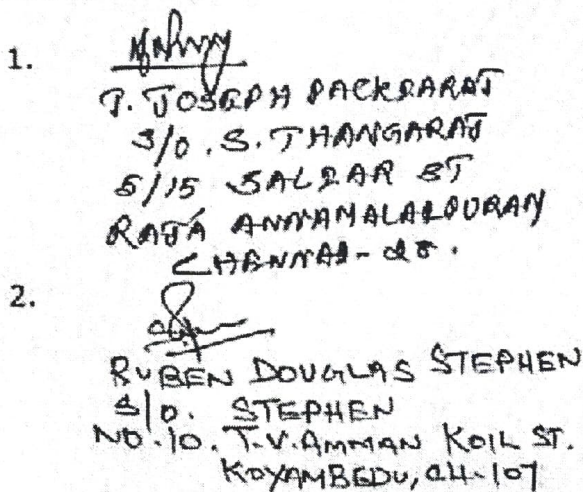 1.
T. JOSEPH PACKIARAJ
S/O. S. THANGARAJ
5/15 SALAR ST
RAJA ANNAMALAIPURAM
CHENNAI - 28.
2.
RUBEN DOUGLAS STEPHEN
S/O. STEPHEN
NO.10. T.V. AMMAN KOIL ST.
KOYAMBEDU, CH-107